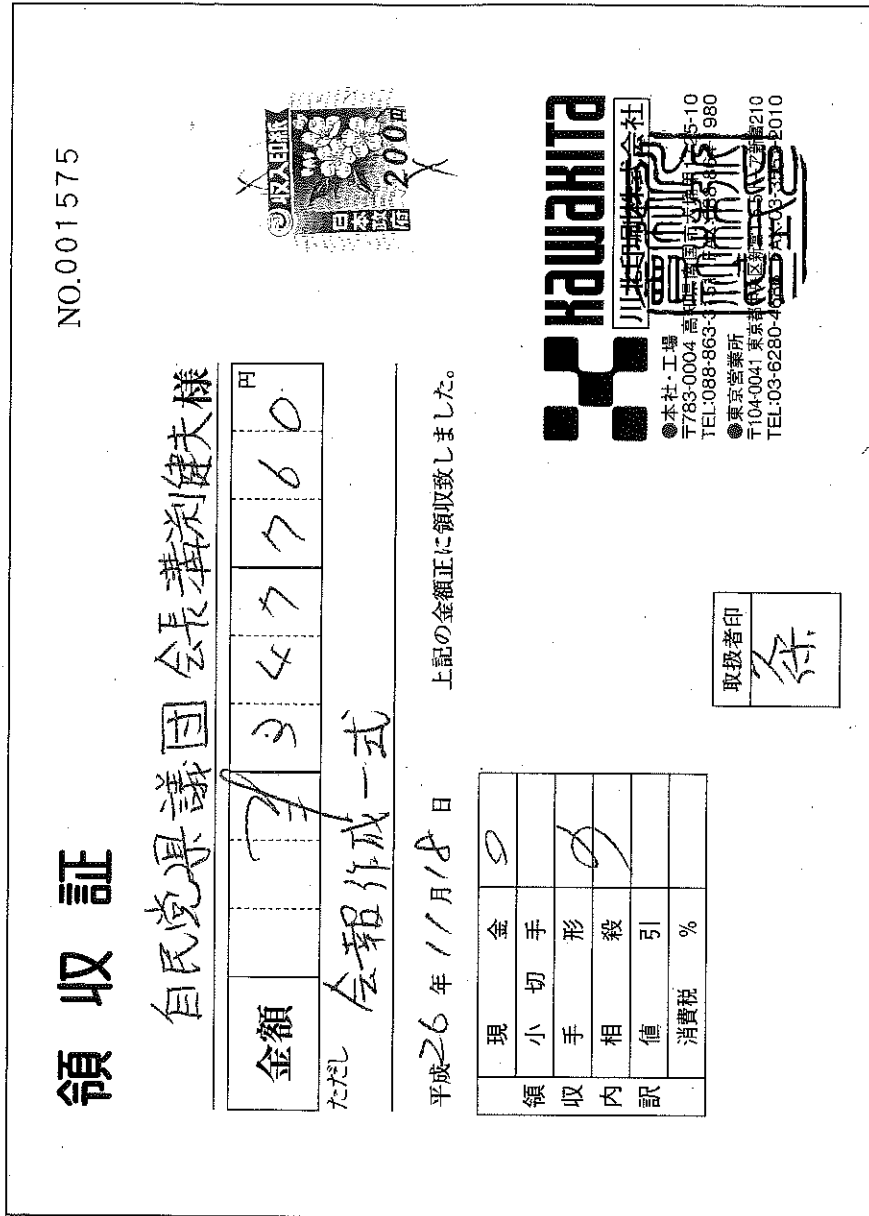 領収証
NO.001575
自民党県議団 会長 溝渕健夫様
金額 ¥347760円
ただし 会報作成一式
平成26年11月18日 上記の金額正に領収致しました。
領収内訳
現金
小切手
手形
相殺
値引
消費税 %
取扱者印
収入印紙
200円
日本政府
KAWAKITA
川北印刷株式会社
●本社・工場
〒783-0004 高知県南国市
TEL:088-863-
●東京営業所
〒104-0041 東京都中央区新富
TEL:03-6280-